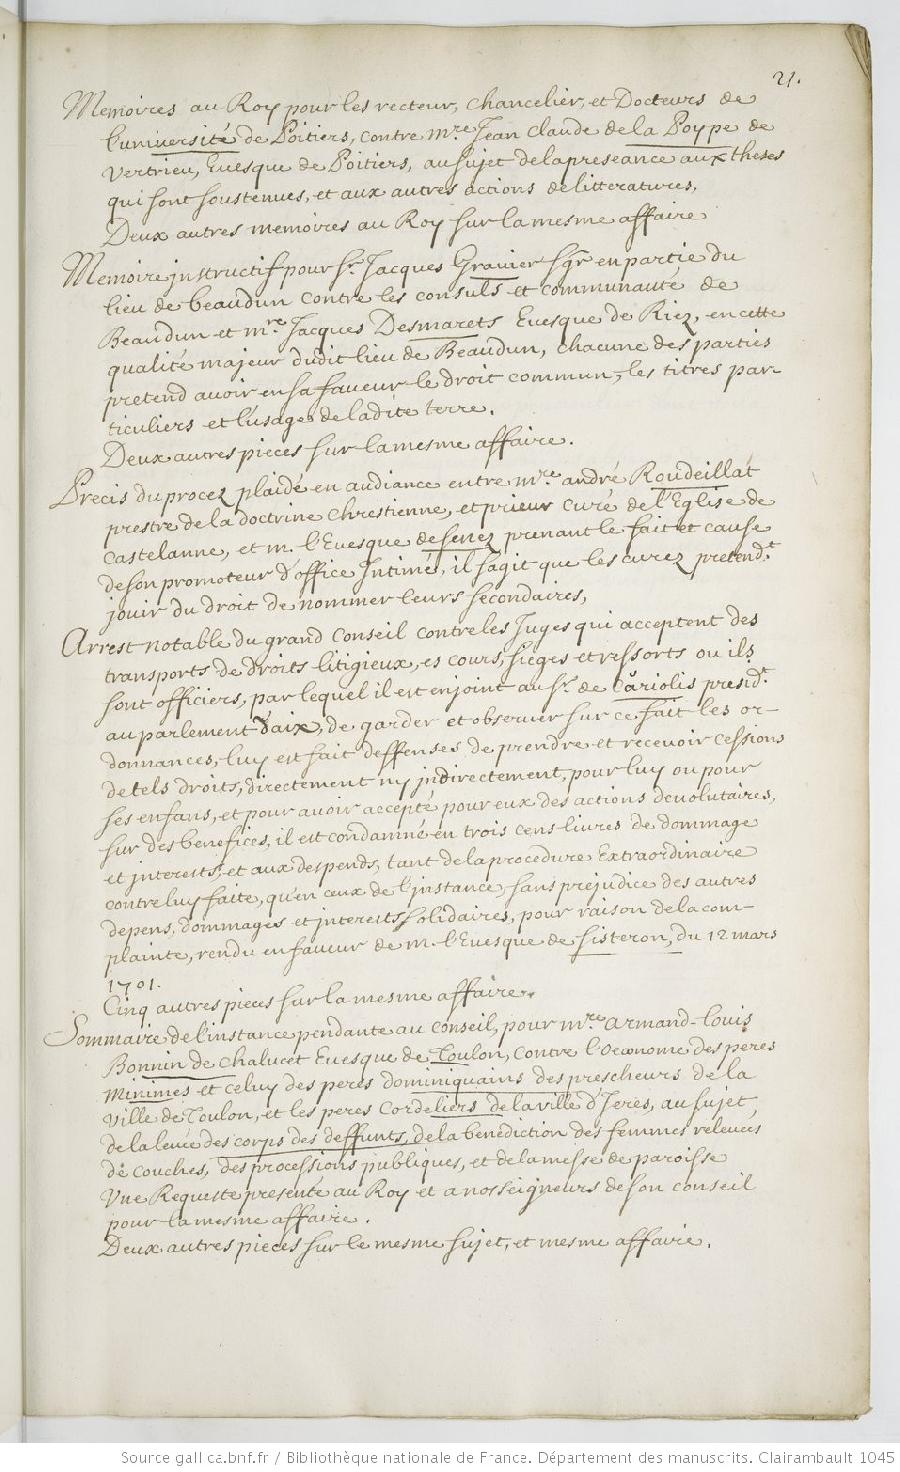 21.
Memoires au Roy pour les recteur, chancelier, et Docteurs de
l'université de Poitiers, contre mre Jean Claude de la Poype de
Vertrieu, Evesque de Poitiers, au sujet de la preseance aux theses
qui sont soustenues, et aux autres actions de litteratures,
Deux autres memoires au Roy sur la mesme affaire
Memoire jnstructif pour Sr. Jacques Gravier Sgr en partie du
lieu de beaudun contre les consuls et communauté de
Beaudun et mre Jacques Desmarets Evesque de Riez, en cette
qualité majeur dudit lieu de Beaudun, chacune des parties
pretend avoir en sa faveur le droit commun, les titres par-
ticuliers et l'usage de ladite terre.
Deux autres pieces sur la mesme affaire.
Precis du procez plaidé en audiance entre mre andré Roudeillat
prestre de la doctrine chrestienne, et prieur curé de l'Eglise de
Castelanne, et m. l'Evesque de Senez prenant le fait et cause
de son promoteur d'office Intimé, il s'agit que les curez pretendt
jouir du droit de nommer leurs secondaires,
Arrest notable du grand Conseil contre les Juges qui acceptent des
transports de droits litigieux, es cours, sieges et ressorts ou ils
sont officiers, par lequel il est enjoint au Sr. de Cariolis presidt
au parlement d'aix, de garder et observer sur ce fait les or-
donnances, luy est fait deffenses de prendre et recevoir cessions
de tels droits, directement ny jndirectement, pour luy ou pour
ses enfans, et pour avoir accepté pour eux des actions devolutaires,
sur des benefices, il est condamné en trois cens livres de dommage
et jnterests, et aux despends, tant de la procedure Extraordinaire
contre luy faite, qu'en ceux de l'jnstance, sans prejudice des autres
depens, dommages et jnterests solidaires, pour raison de la com-
plainte, rendu en faveur de m. l'Evesque de Sisteron, du 12 mars
1701.
Cinq autres pieces sur la mesme affaire.
Sommaire de l'instance pendante au conseil, pour mre armand-louis
Bonnin de Chalucet Evesque de Toulon, contre l'Oeconome des peres
Minimes et celuy des peres dominiquains des prescheurs de la
ville de Toulon, et les peres Cordeliers de la ville d'Jeres, au sujet
de la levée des corps des deffunts, de la benediction des femmes relevées
de couches, des processions publiques, et de la messe de paroisse
Vne Requeste presenté au Roy et a nosseigneurs de son conseil
pour la mesme affaire.
Deux autres pieces sur le mesme sujet, et mesme affaire.
Source gallica.bnf.fr / Bibliothèque nationale de France. Département des manuscrits. Clairambault 1045